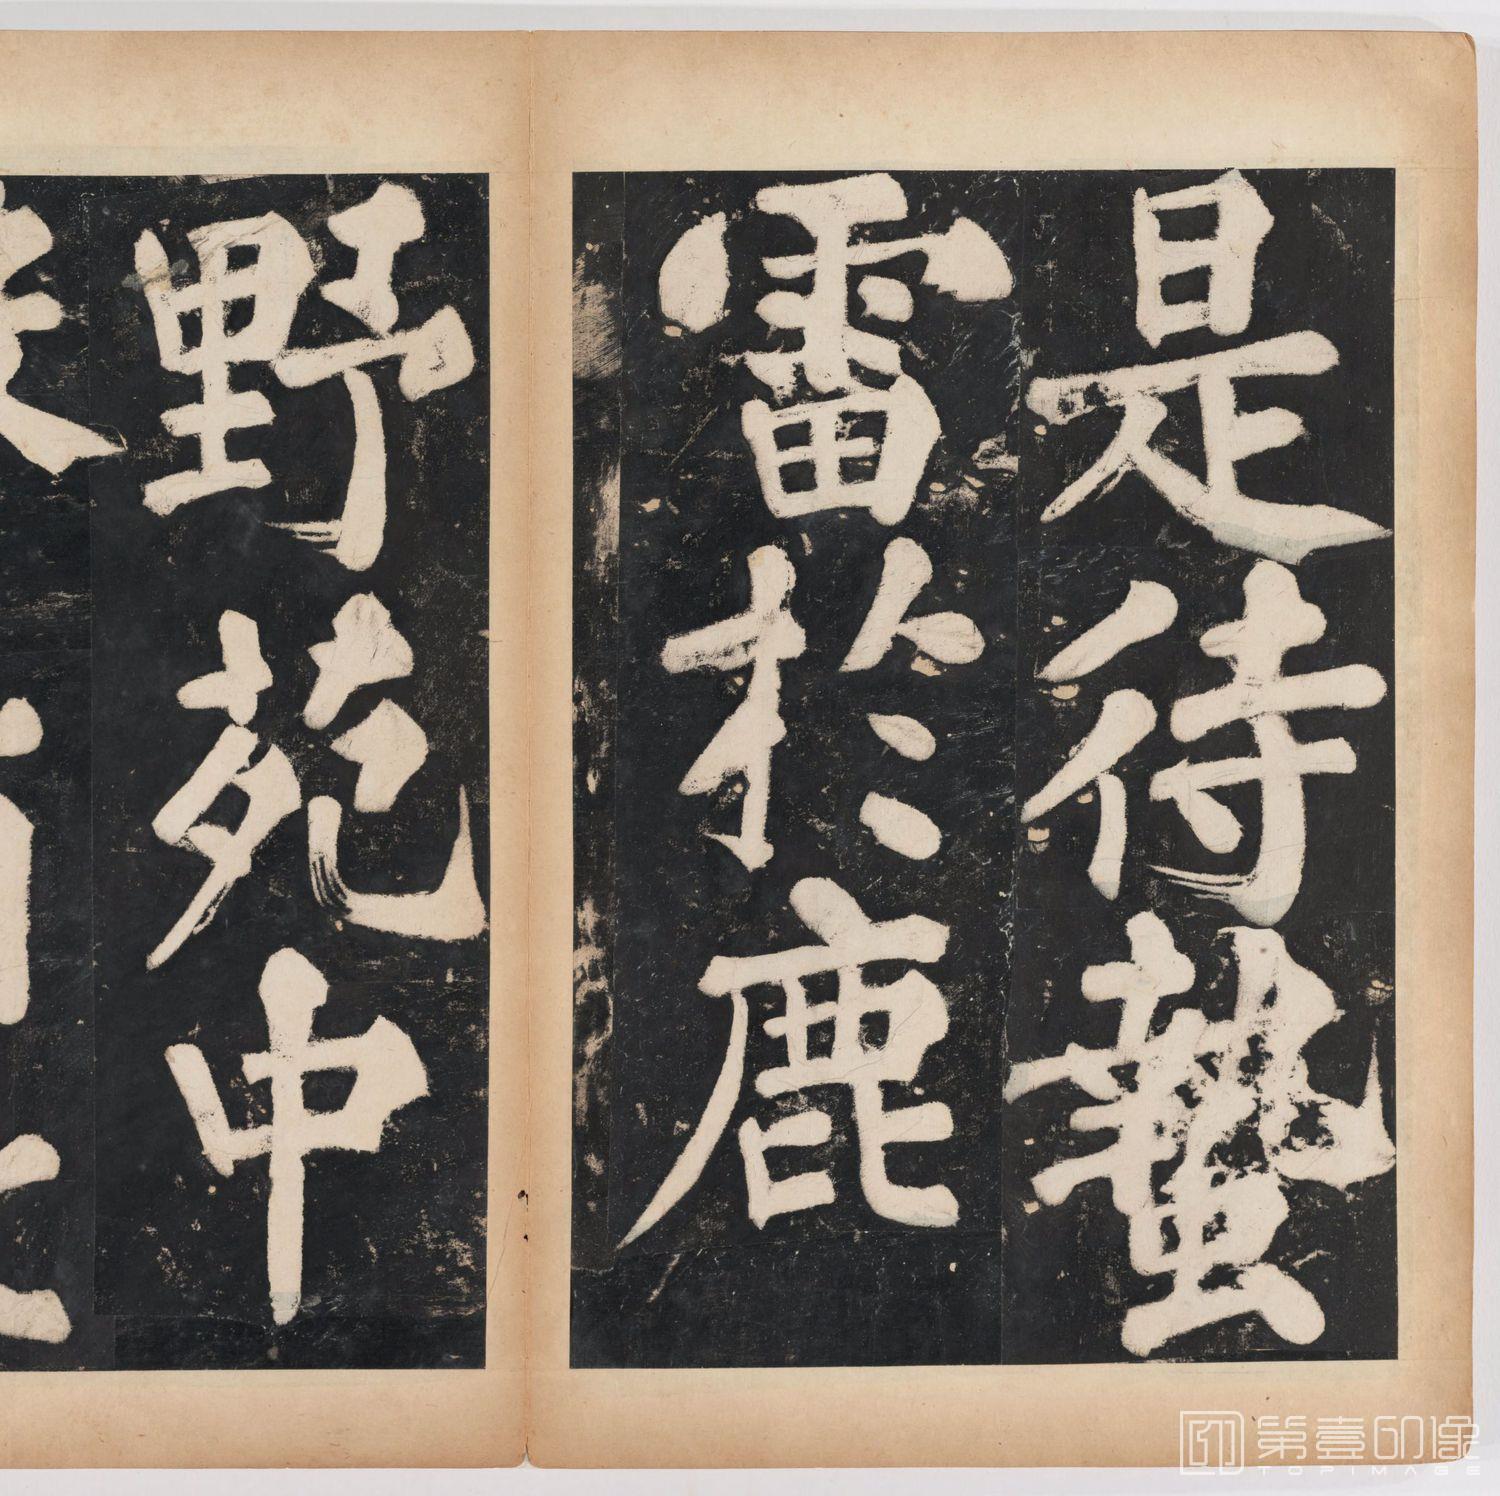 是待蟄
雷於鹿
野苑中
第壹印像
TOPIMAGE